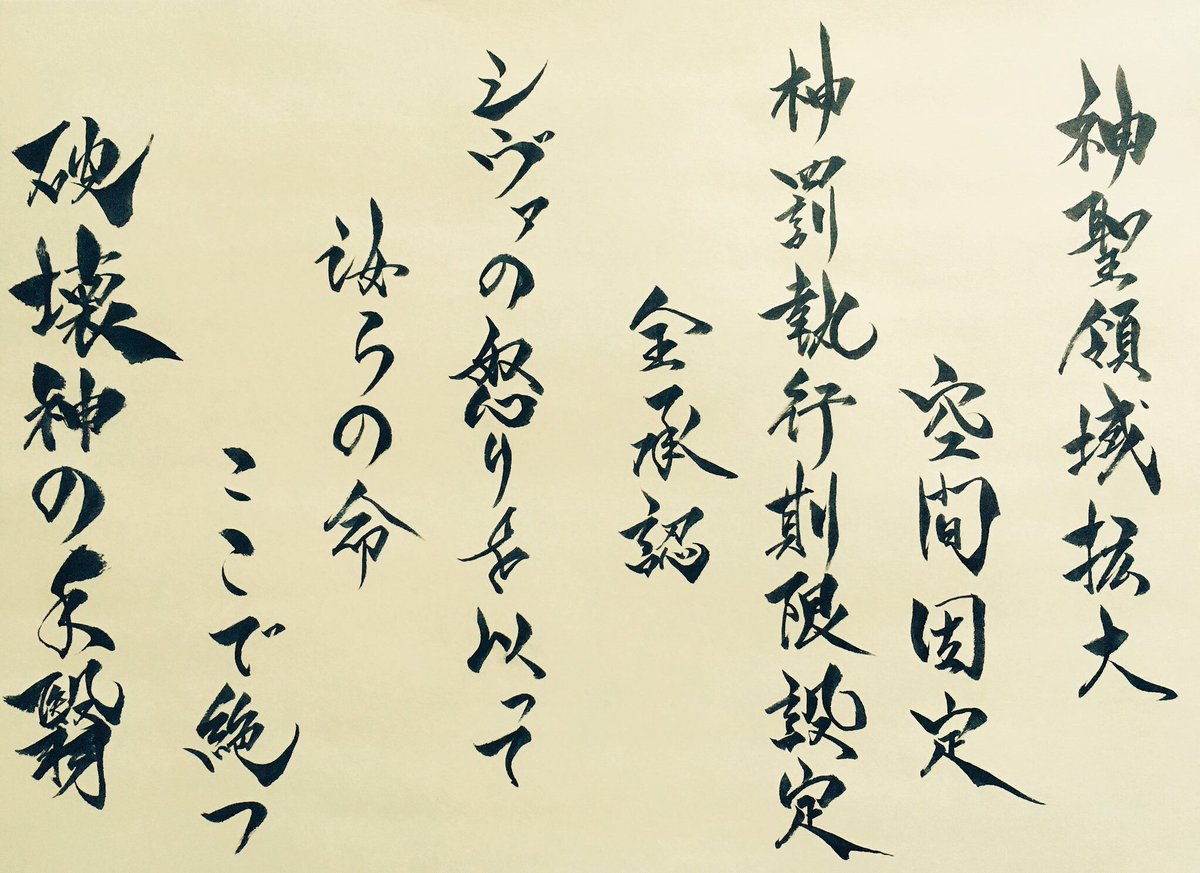 神聖領域拡大
空間固定
神罰執行期限設定
全承認
シヴァの怒りを以って
汝らの命
ここで絶つ
破壊神の手翳